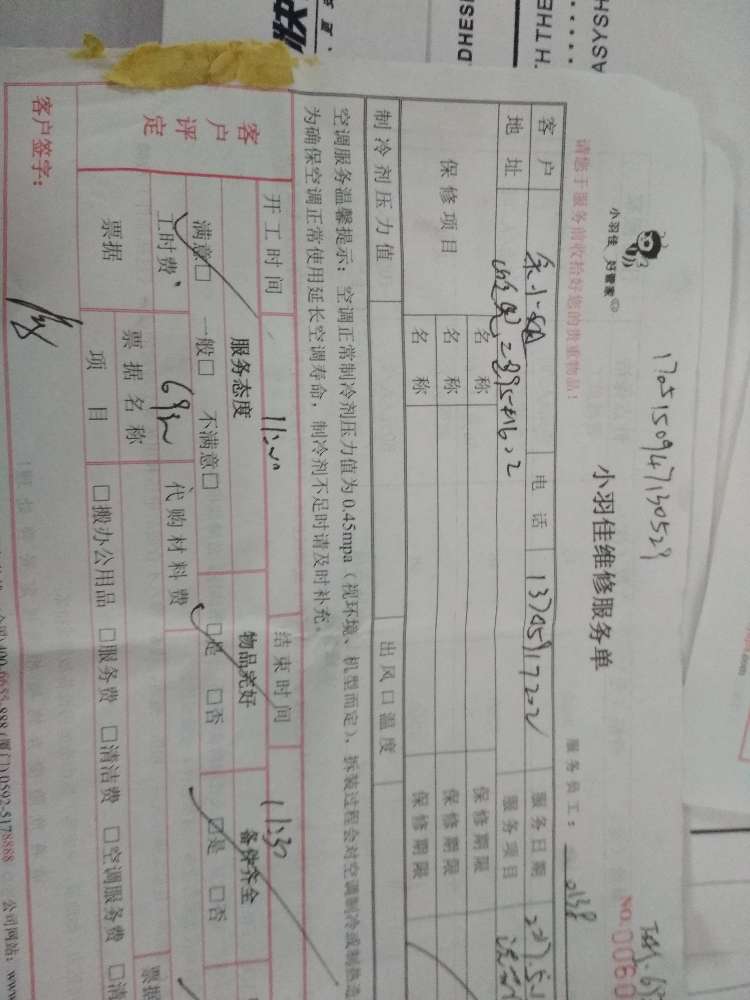 ASYSH
EHTH.
DHESI
快
1705150947130529
小羽佳 好管家
小羽佳维修服务单
NO.0060
请您于服务前收拾好您的贵重物品!
服务员工: 0138
客户 电话 13705917202 服务日期
地址 服务项目
保修项目 名称 保修期限
名称 保修期限
名称 保修期限
制冷剂压力值 出风口温度
空调服务温馨提示:空调正常制冷剂压力值为0.45mpa(视环境、机型而定),拆装过程会对空调制冷或制热造
为确保空调正常使用延长空调寿命,制冷剂不足时请及时补充。
开工时间 11:00 结束时间 11:30
客户评定 服务态度 物品完好 备件齐全
满意□ 一般□ 不满意□ □是 □否 □是 □否
工时费 69元 代购材料费
票据 票据名称 票据
项目 □搬办公用品 □服务费 □清洁费 □空调服务费 □清
客户签字:
(厦门)0592-5178888 公司网站:www